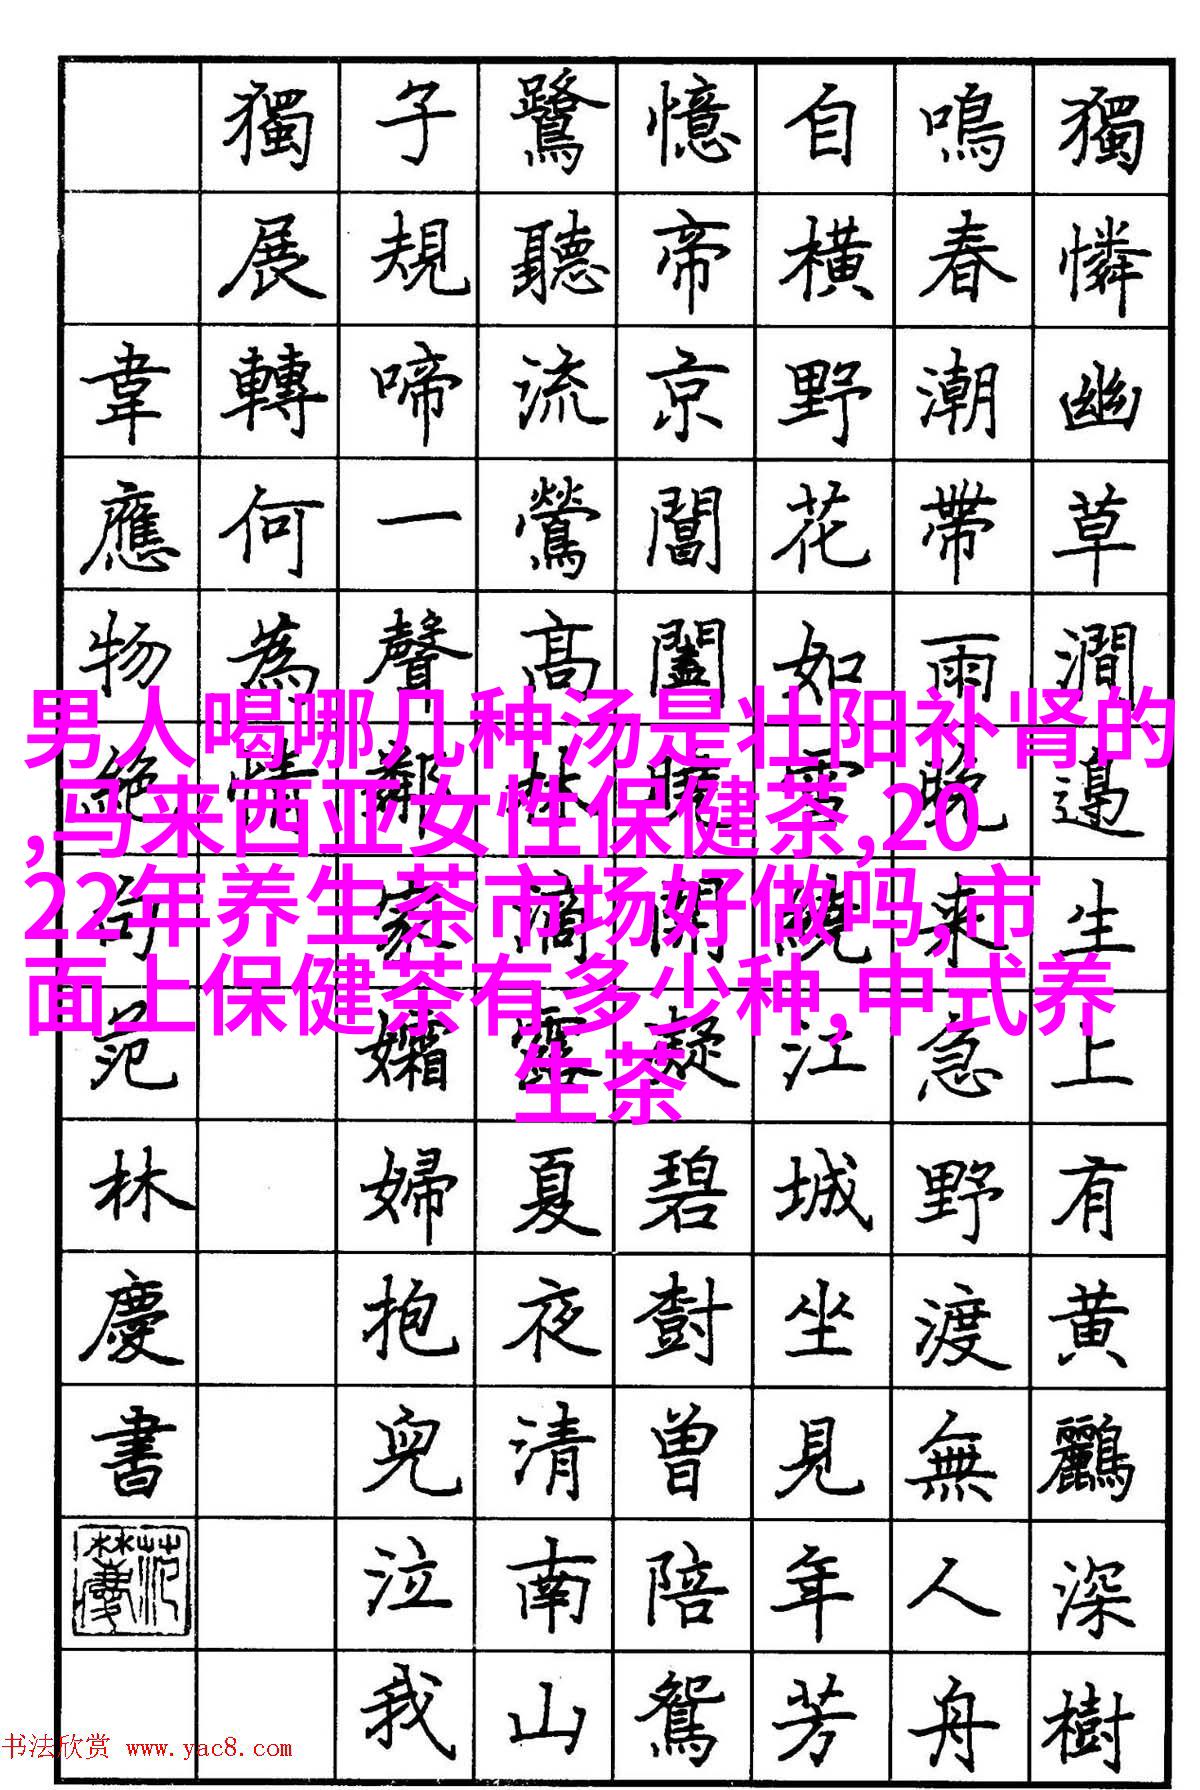 獨憐幽草澗邊生上有黄鸝深樹
鳴春潮帶雨晚來急野渡無人舟
自橫野花如雪繞江城坐見年芳
憶帝京閶闔曉開凝碧樹曾陪鴛
鷺聽流鶯高林滴露夏夜清南山
子規啼一聲鄰家孀婦抱兒泣我
獨展轉何為情
韋應物絶句范林慶書
男人喝哪几种汤是壮阳补肾的
,马来西亚女性保健茶,20
22年养生茶市场好做吗,市
面上保健茶有多少种,中式养
生茶
书法欣赏 www.yac8.com